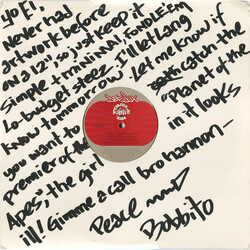 Yo Fi,
Never had
artwork before
on a 12", so just keep it
simple & t minimal. FONDLE'EM
lo-budget steez. I'll let Lang
know tomorrow. Let me know if
you want to catch the
Premier of the "Planet of the
Apes", the girl in it looks
ill! Gimme a call bro hannon—
Peace
Bobbito